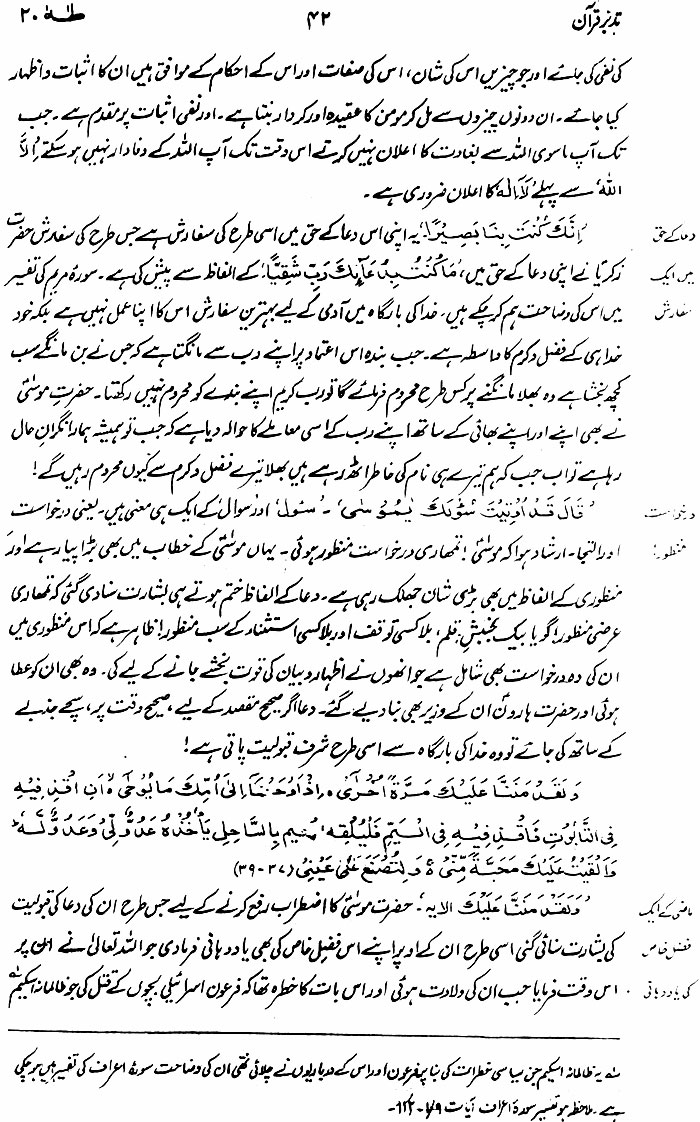 تدبر قرآن ۴۲ طٰہٰ ۲۰
کی نفی کی جائے اور جو چیزیں اس کی شان، اس کی صفات اور اس کے احکام کے موافق ہیں ان کا اثبات و اظہار
کیا جائے۔ ان دونوں چیزوں سے مل کر مومن کا عقیدہ اور کردار بنتا ہے۔ اور نفی اثبات پر مقدم ہے۔ جب
تک آپ ماسوی اللہ سے بغاوت کا اعلان نہیں کرتے اس وقت تک آپ اللہ کے وفادار نہیں ہو سکتے، اِلَّا
اللہُ سے پہلے لَا اِلٰہَ کا اعلان ضروری ہے۔
دعا کے حق
'اِنَّكَ كُنْتَ بِنَا بَصِيْرًا' یہ اپنی اس دعا کے حق میں اسی طرح کی سفارش ہے جس طرح کی سفارش حضرت
میں ایک
زکریاؑ نے اپنی دعا کے حق میں، 'مَا كُنْتُ بِدُعَآئِكَ رَبِّ شَقِيًّا' کے الفاظ سے پیش کی ہے۔ سورۂ مریم کی تفسیر
سفارش
میں اس کی وضاحت ہم کر چکے ہیں۔ خدا کی بارگاہ میں آدمی کے لیے بہترین سفارش اس کا اپنا عمل نہیں ہے بلکہ خود
خدا ہی کے فضل و کرم کا واسطہ ہے۔ جب بندہ اس اعتماد پر اپنے رب سے مانگتا ہے کہ جس نے بن مانگے سب
کچھ بخشا ہے وہ بھلا مانگنے پر کس طرح محروم فرمائے گا تو رب کریم اپنے بندے کو محروم نہیں رکھتا۔ حضرت موسٰیؑ
نے بھی اپنے اور اپنے بھائی کے ساتھ اپنے رب کے اسی معاملے کا حوالہ دیا ہے کہ جب تو ہمیشہ ہمارا نگران حال
رہا ہے تو اب جب کہ ہم تیرے ہی نام کی خاطر اٹھ رہے ہیں بھلا تیرے فضل و کرم سے کیوں محروم رہیں گے!
درخواست
'قَالَ قَدْ اُوْتِيْتَ سُؤْلَكَ يٰمُوْسٰى'۔ 'سُئول' اور 'سوال' کے ایک ہی معنی ہیں۔ یعنی درخواست
منظور!
اور التجا۔ ارشاد ہوا کہ موسٰیؑ! تمھاری درخواست منظور ہوئی۔ یہاں موسٰیؑ کے خطاب میں بھی بڑا پیار ہے اور
منظوری کے الفاظ میں بھی بڑی شان جھلک رہی ہے۔ دعا کے الفاظ ختم ہوتے ہی بشارت سنا دی گئی کہ تمھاری
عرضی منظور! گویا بیک جنبش قلم، بلا کسی توقف اور بلا کسی استثناء کے سب منظور! ظاہر ہے کہ اس منظوری میں
ان کی وہ درخواست بھی شامل ہے جو انھوں نے اظہار و بیان کی قوت بخشے جانے کے لیے کی۔ وہ بھی ان کو عطا
ہوئی اور حضرت ہارونؑ ان کے وزیر بھی بنا دیے گئے۔ دعا اگر صحیح مقصد کے لیے، صحیح وقت پر، سچے جذبے
کے ساتھ کی جائے تو وہ خدا کی بارگاہ سے اسی طرح شرف قبولیت پاتی ہے!
وَلَقَدْ مَنَنَّا عَلَيْكَ مَرَّةً اُخْرٰىٓ ہ اِذْ اَوْحَيْنَآ اِلٰىٓ اُمِّكَ مَا يُوْحٰىٓ ہ اَنِ اقْذِفِيْهِ
فِى التَّابُوْتِ فَاقْذِفِيْهِ فِى الْيَمِّ فَلْيُلْقِهِ الْيَمُّ بِالسَّاحِلِ يَاْخُذْهُ عَدُوٌّ لِّىْ وَعَدُوٌّ لَّهٗ ط
وَاَلْقَيْتُ عَلَيْكَ مَحَبَّةً مِّنِّىْ ۵ وَلِتُصْنَعَ عَلٰى عَيْنِىْ (۳۷-۳۹)
ماضی کے ایک
'وَلَقَدْ مَنَنَّا عَلَيْكَ الایہ'۔ حضرت موسٰیؑ کا اضطراب رفع کرنے کے لیے جس طرح ان کی دعا کی قبولیت
فضل خاص
کی بشارت سنائی گئی اسی طرح ان کے اوپر اپنے اس فضل خاص کی بھی یاددہانی فرما دی جو اللہ تعالیٰ نے ان پر
کی یاددہانی
اس وقت فرمایا جب ان کی ولادت ہوئی اور اس بات کا خطرہ تھا کہ فرعون اسرائیلی بچوں کے قتل کی جو ظالمانہ اسکیم
یہ ظالمانہ اسکیم جن سیاسی خطرات کی بنا پر فرعون اور اس کے درباریوں نے چلائی تھی ان کی وضاحت سورۂ اعراف کی تفسیر میں ہو چکی
ہے۔ ملاحظہ ہو تفسیر سورۂ اعراف آیات